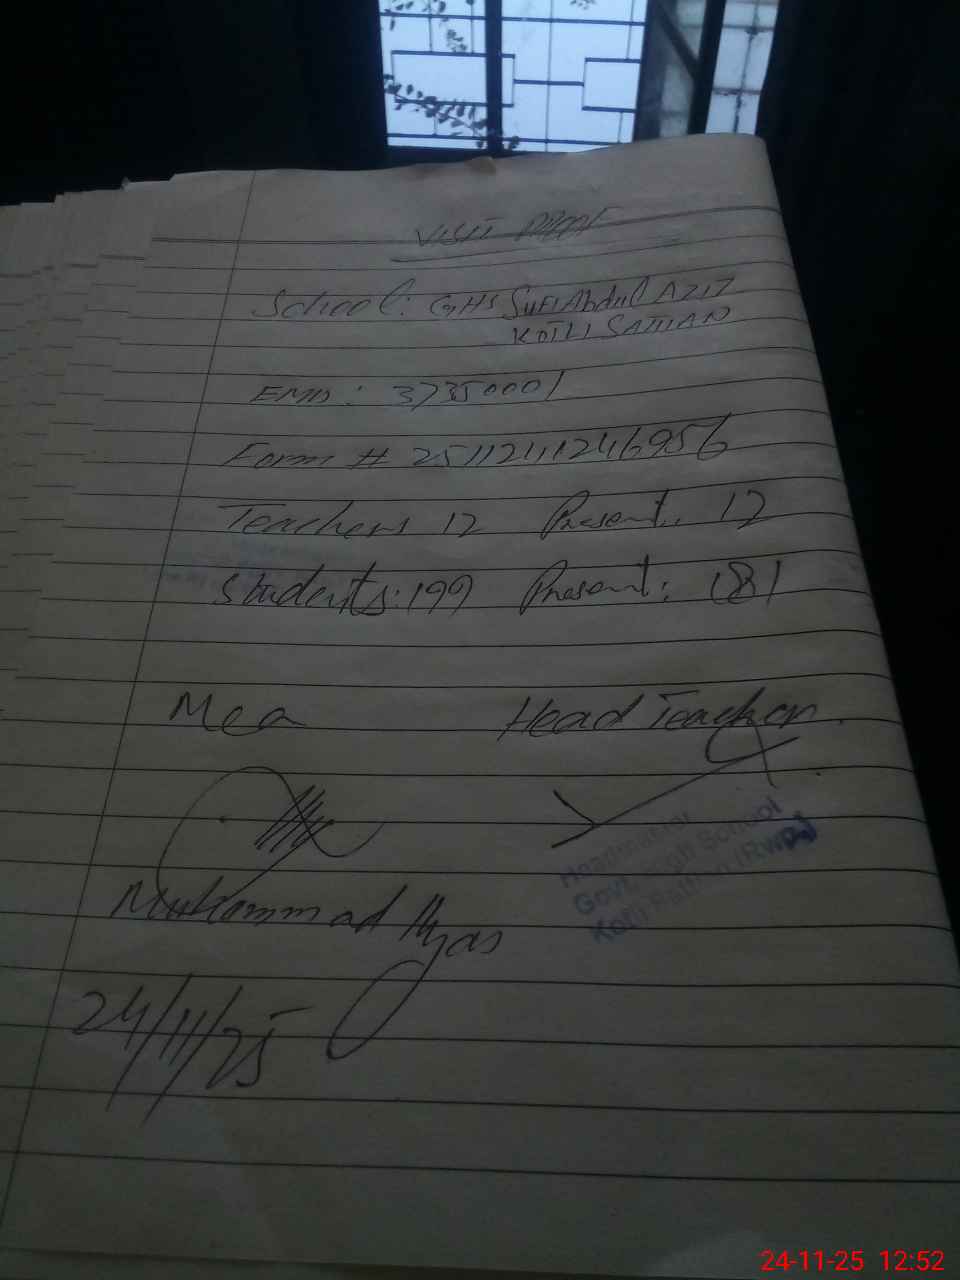 VISIT PROOF
School: GHS Sufi Abdul AZIZ
KOTLI SATTIAN
EMIS: 37350001
Form # 25112411246956
Teachers 12 Present: 12
Students: 199 Present: 181
Mea Head Teacher.
Headmaster
Govt. High School
Kotli Sattian (Rwp)
Muhammad Ilyas
24/11/25
24-11-25 12:52